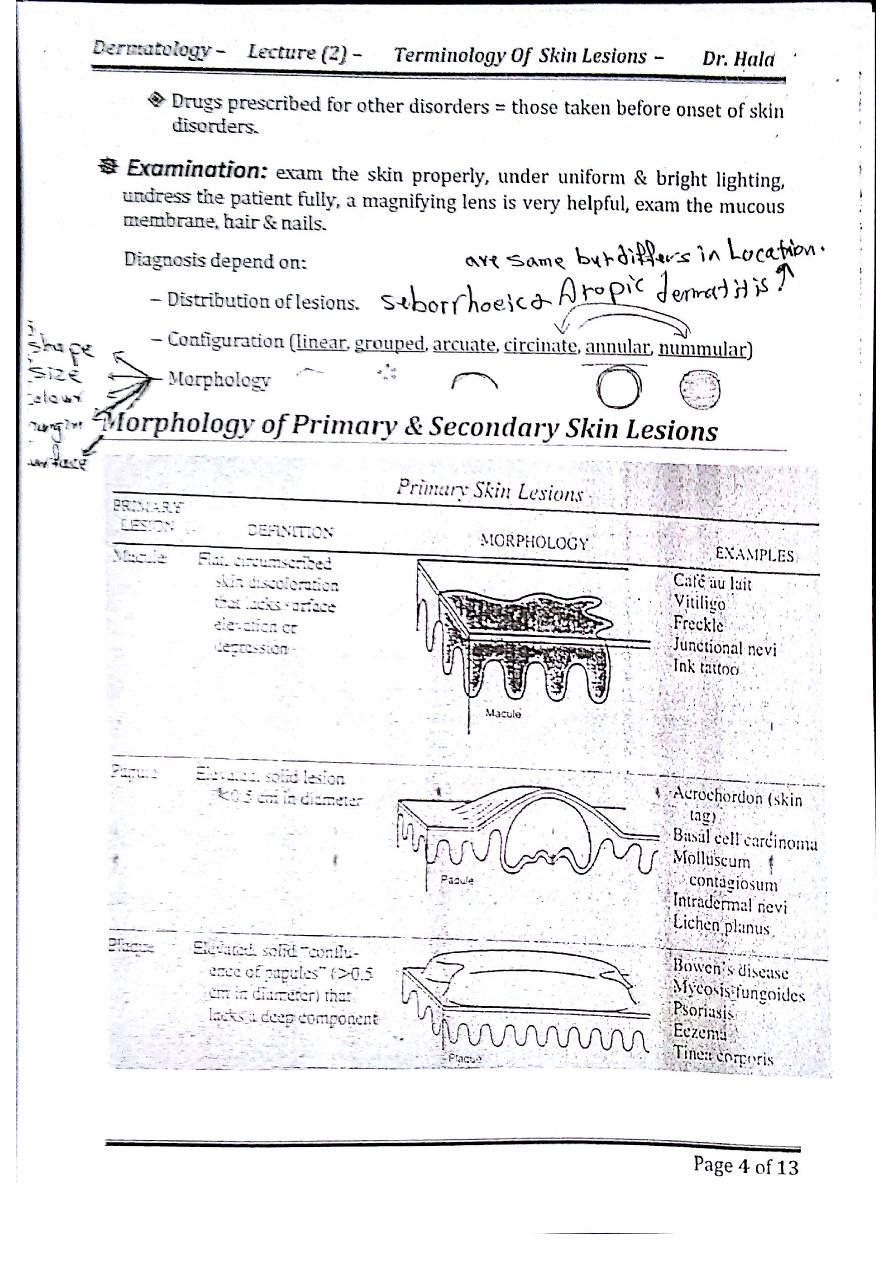 Dermatology – Lecture (2) – Terminology Of Skin Lesions – Dr. Hala
Drugs prescribed for other disorders = those taken before onset of skin
disorders.
Examination: exam the skin properly, under uniform & bright lighting,
undress the patient fully, a magnifying lens is very helpful, exam the mucous
membrane, hair & nails.
Diagnosis depend on:
are same but differs in Location.
– Distribution of lesions. Seborrhoeic & Atopic dermatitis
– Configuration (linear, grouped, arcuate, circinate, annular, nummular)
– Morphology
shape
size
Morphology of Primary & Secondary Skin Lesions
Primary Skin Lesions
PRIMARY
LESION DEFINITION MORPHOLOGY EXAMPLES
Macule Flat, circumscribed
skin discoloration
that lacks surface
elevation or
depression
Macule
Café au lait
Vitiligo
Freckle
Junctional nevi
Ink tattoo
Papule Elevated, solid lesion
<0.5 cm in diameter
Papule
Acrochordon (skin
tag)
Basal cell carcinoma
Molluscum
contagiosum
Intradermal nevi
Lichen planus
Plaque Elevated, solid "conflu-
ence of papules" (>0.5
cm in diameter) that
lacks a deep component
Plaque
Bowen's disease
Mycosis fungoides
Psoriasis
Eczema
Tinea corporis
Page 4 of 13